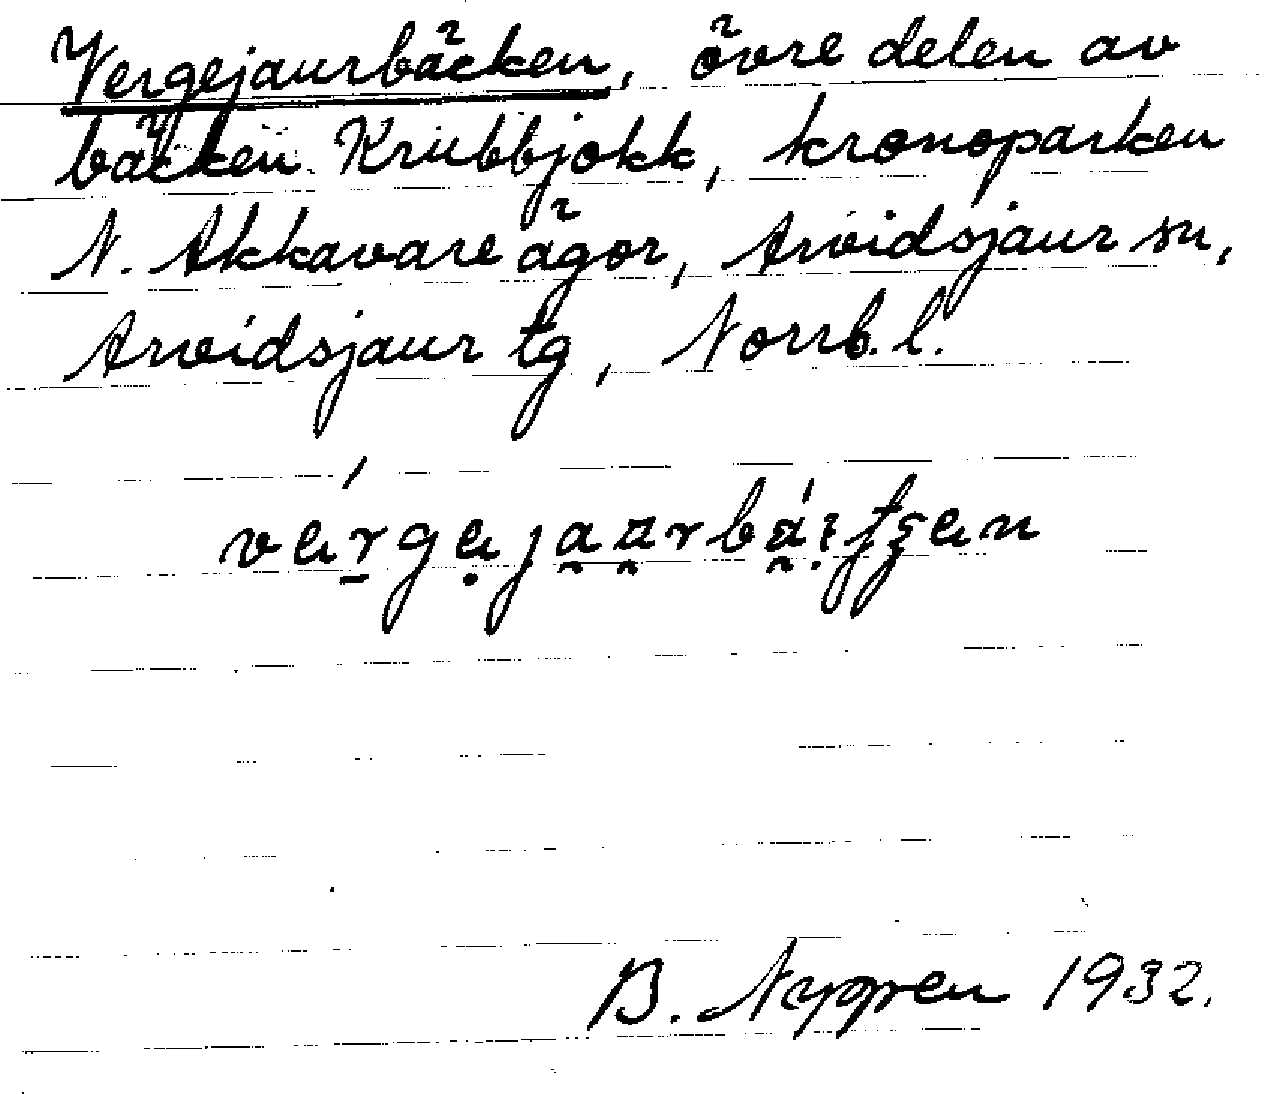 Vergejaurbäcken, övre delen av
bäcken Krubbjokk, kronoparken
N. Akkavare ägor, Arvidsjaur sn,
Arvidsjaur tg, Norrb. l.
B. Nygren 1932.